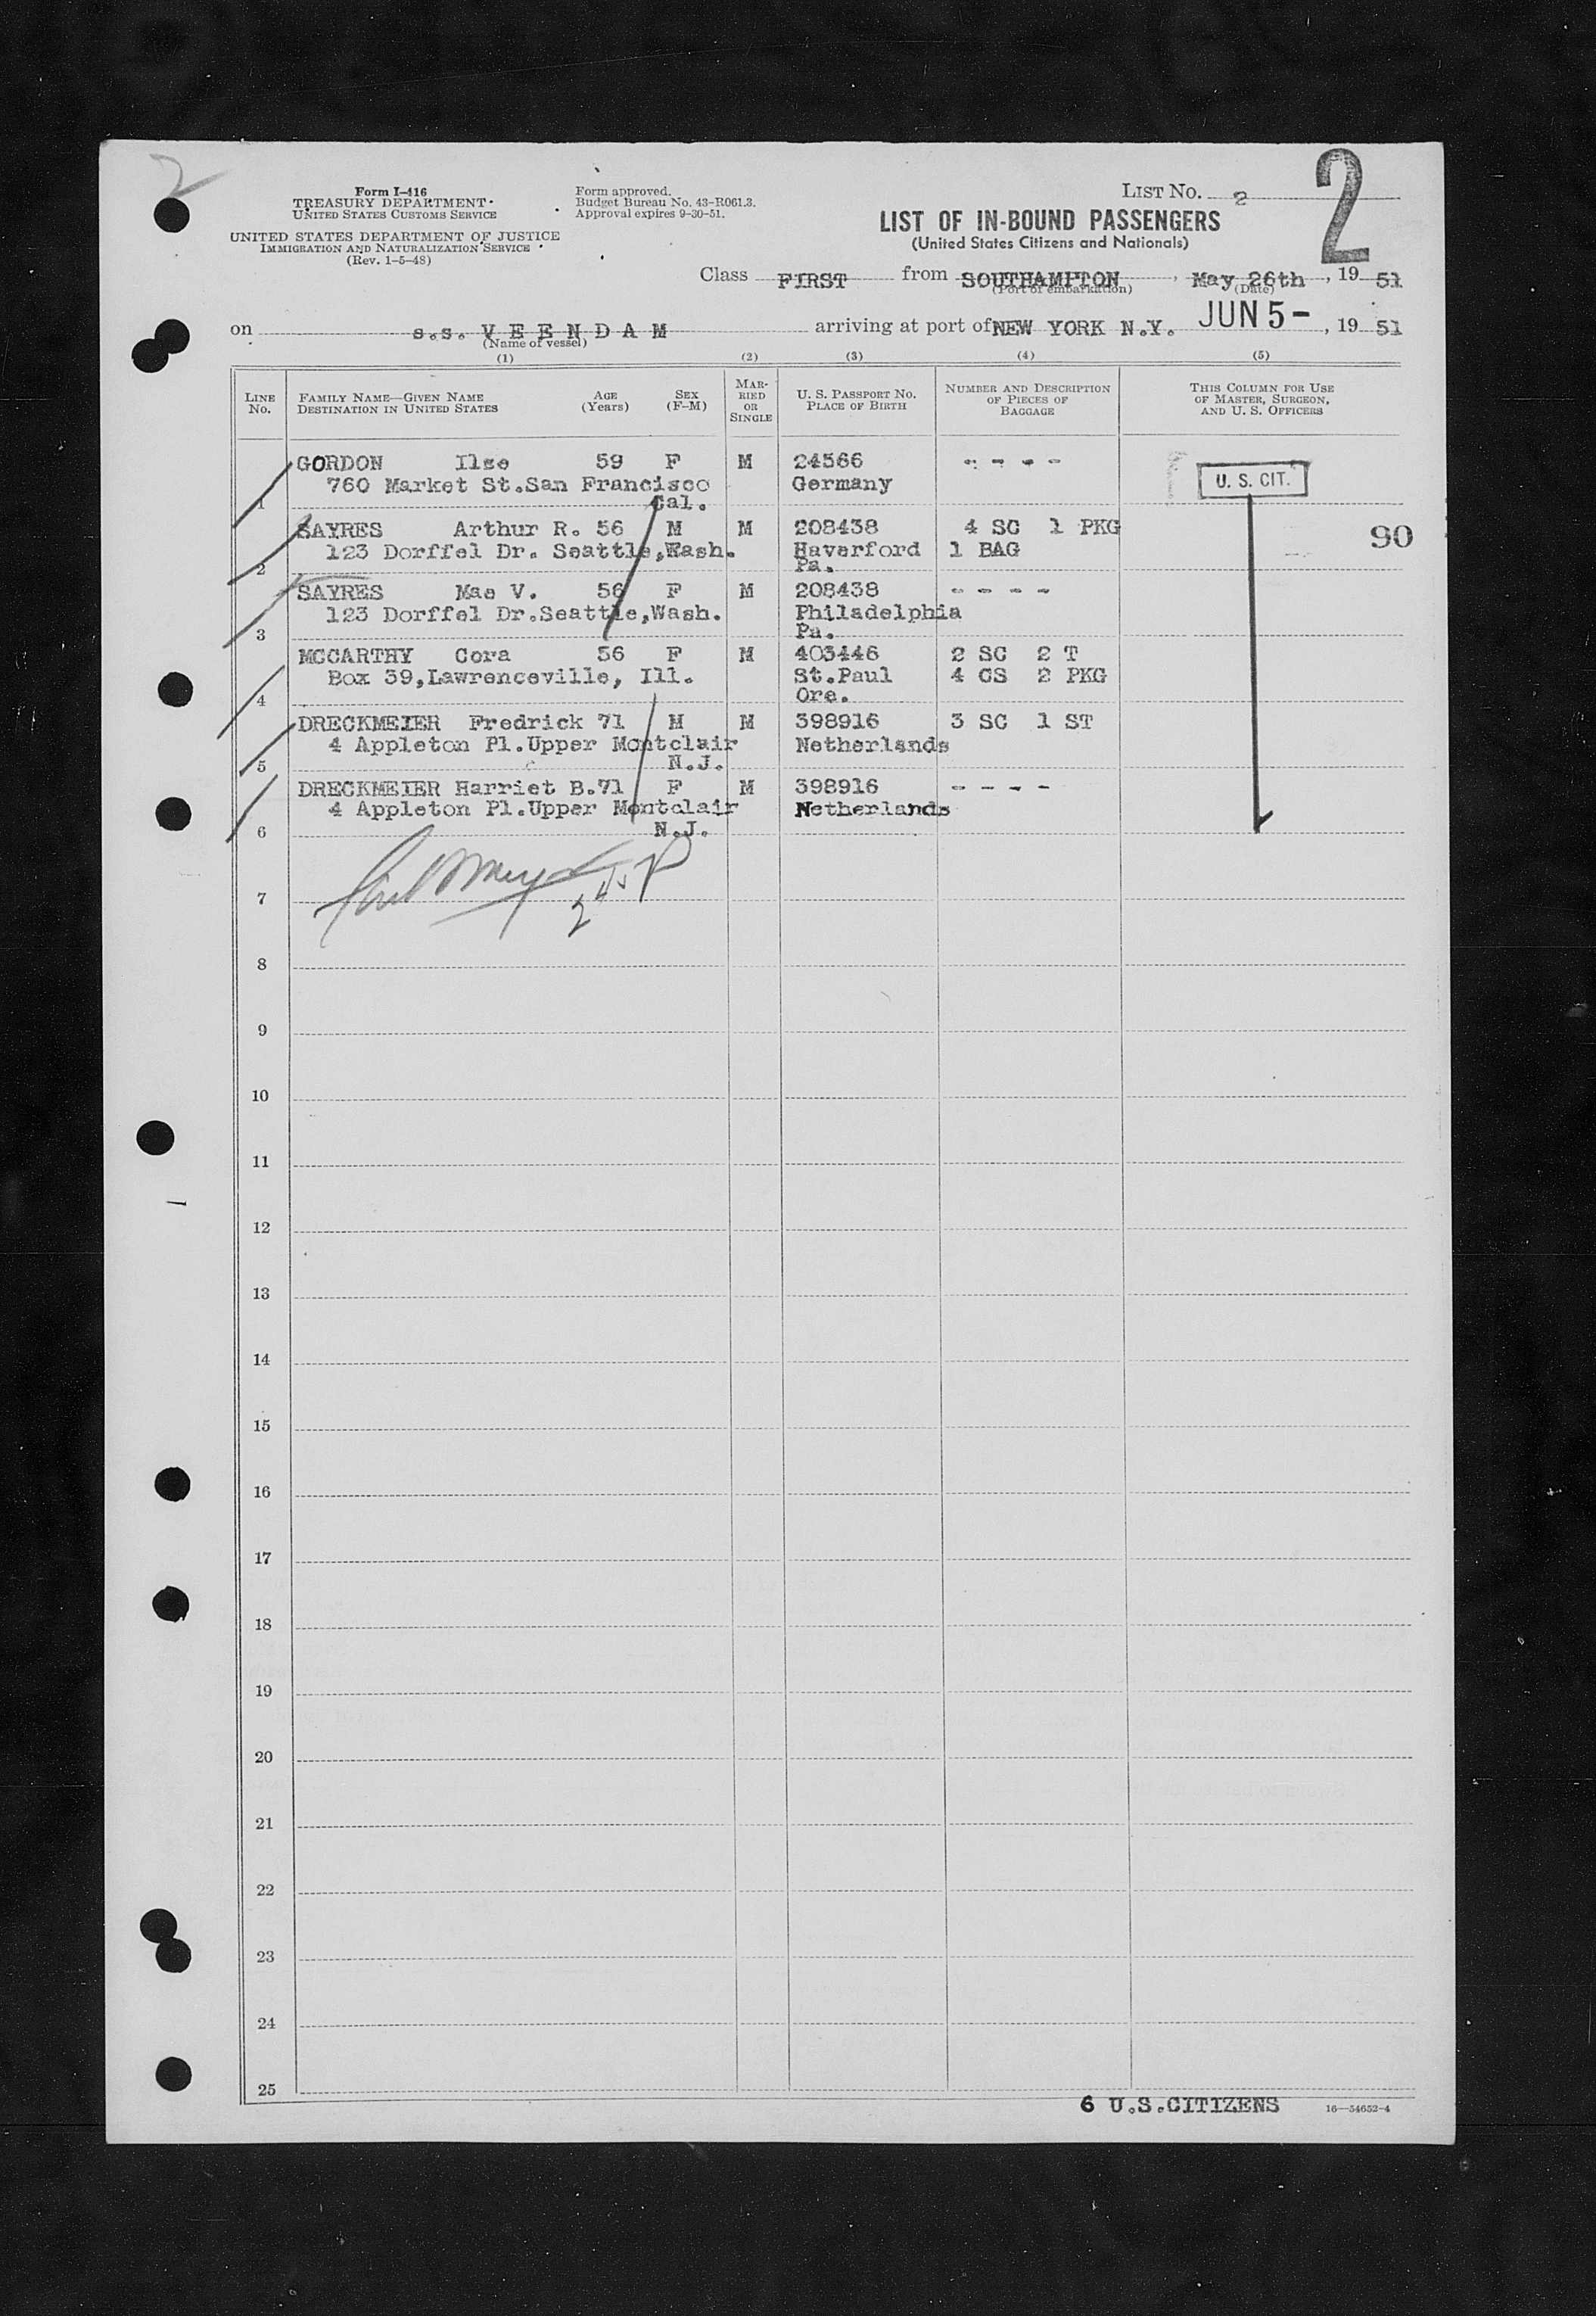 2
Form I-416
TREASURY DEPARTMENT
UNITED STATES CUSTOMS SERVICE
UNITED STATES DEPARTMENT OF JUSTICE
IMMIGRATION AND NATURALIZATION SERVICE
(Rev. 1-5-48)
Form approved.
Budget Bureau No. 43-R061.3.
Approval expires 9-30-51.
LIST NO. 2
2
LIST OF IN-BOUND PASSENGERS
(United States Citizens and Nationals)
Class FIRST from SOUTHAMPTON, May 26th, 19 51
(Port of embarkation) (Date)
on s.s. V E E N D A M arriving at port of NEW YORK N.Y. JUN 5-, 19 51
(Name of vessel)
(1) (2) (3) (4) (5)
LINE No. FAMILY NAME—GIVEN NAME DESTINATION IN UNITED STATES AGE (Years) SEX (F-M) MARRIED OR SINGLE U. S. PASSPORT NO. PLACE OF BIRTH NUMBER AND DESCRIPTION OF PIECES OF BAGGAGE THIS COLUMN FOR USE OF MASTER, SURGEON, AND U. S. OFFICERS
GORDON Ilse 59 F M 24566 - - - -
760 Market St.San Francisco Germany U. S. CIT.
1 Cal.
SAYRES Arthur R. 56 M M 208438 4 SC 1 PKG 90
123 Dorffel Dr. Seattle,Wash. Haverford 1 BAG
2 Pa.
SAYRES Mae V. 56 F M 208438 - - - -
123 Dorffel Dr.Seattle,Wash. Philadelphia
3 Pa.
MCCARTHY Cora 56 F M 403446 2 SC 2 T
Box 39,Lawrenceville, Ill. St.Paul 4 CS 2 PKG
4 Ore.
DRECKMEIER Fredrick 71 M M 398916 3 SC 1 ST
4 Appleton Pl.Upper Montclair Netherlands
5 N.J.
DRECKMEIER Harriet B.71 F M 398916 - - - -
4 Appleton Pl.Upper Montclair Netherlands
6 N.J.
7
8
9
10
11
12
13
14
15
16
17
18
19
20
21
22
23
24
25
6 U.S.CITIZENS 16—54652-4